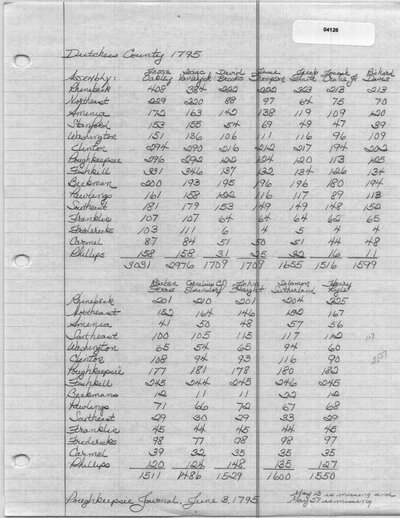 04126
Dutchess County 1795
Assembly: Jesse Oakley Isaac VanWyck David Brooks Jesse Thompson Jacob Smith Joseph Crane Jr Richard Davis
Rhinebeck 408 384 222 222 223 213 213
Northeast 229 220 88 97 64 75 70
Amenia 172 163 142 138 119 109 120
Stanford 153 155 54 69 49 47 39
Washington 151 136 106 111 116 96 109
Clinton 294 290 216 212 217 194 202
Poughkeepsie 296 292 122 124 120 113 125
Fishkill 331 346 137 132 134 126 134
Beekman 200 193 195 196 196 180 194
Pawlings 161 158 122 116 117 89 113
Southeast 181 179 153 149 149 148 152
Franklin 107 107 64 64 64 62 65
Fredericks 103 111 6 4 5 4 4
Carmel 87 84 51 50 51 44 48
Phillips 158 158 31 25 32 16 11
3031 2976 1709 1709 1655 1516 1599
John Solomon Sutherland Henry
Rhinebeck 201 210 201 204 225
Northeast 152 164 146 122 167
Amenia 41 50 48 57 56
100 105 115 117 112
Washington 65 54 65 94 60
Clinton 108 94 93 116 90
Poughkeepsie 177 181 178 180 182
Fishkill 245 244 245 246 245
Beekmans 12 11 11 22 12
Pawlings 71 66 72 67 68
Southeast 29 30 29 33 29
Franklin 45 44 45 44 45
Fredericks 98 77 98 98 97
Carmel 39 32 35 35 35
Phillips 120 124 148 135 127
1511 1486 1529 1600 1550
Poughkeepsie Journal, June 3, 1795
May 13 is missing and
May 27 is missing